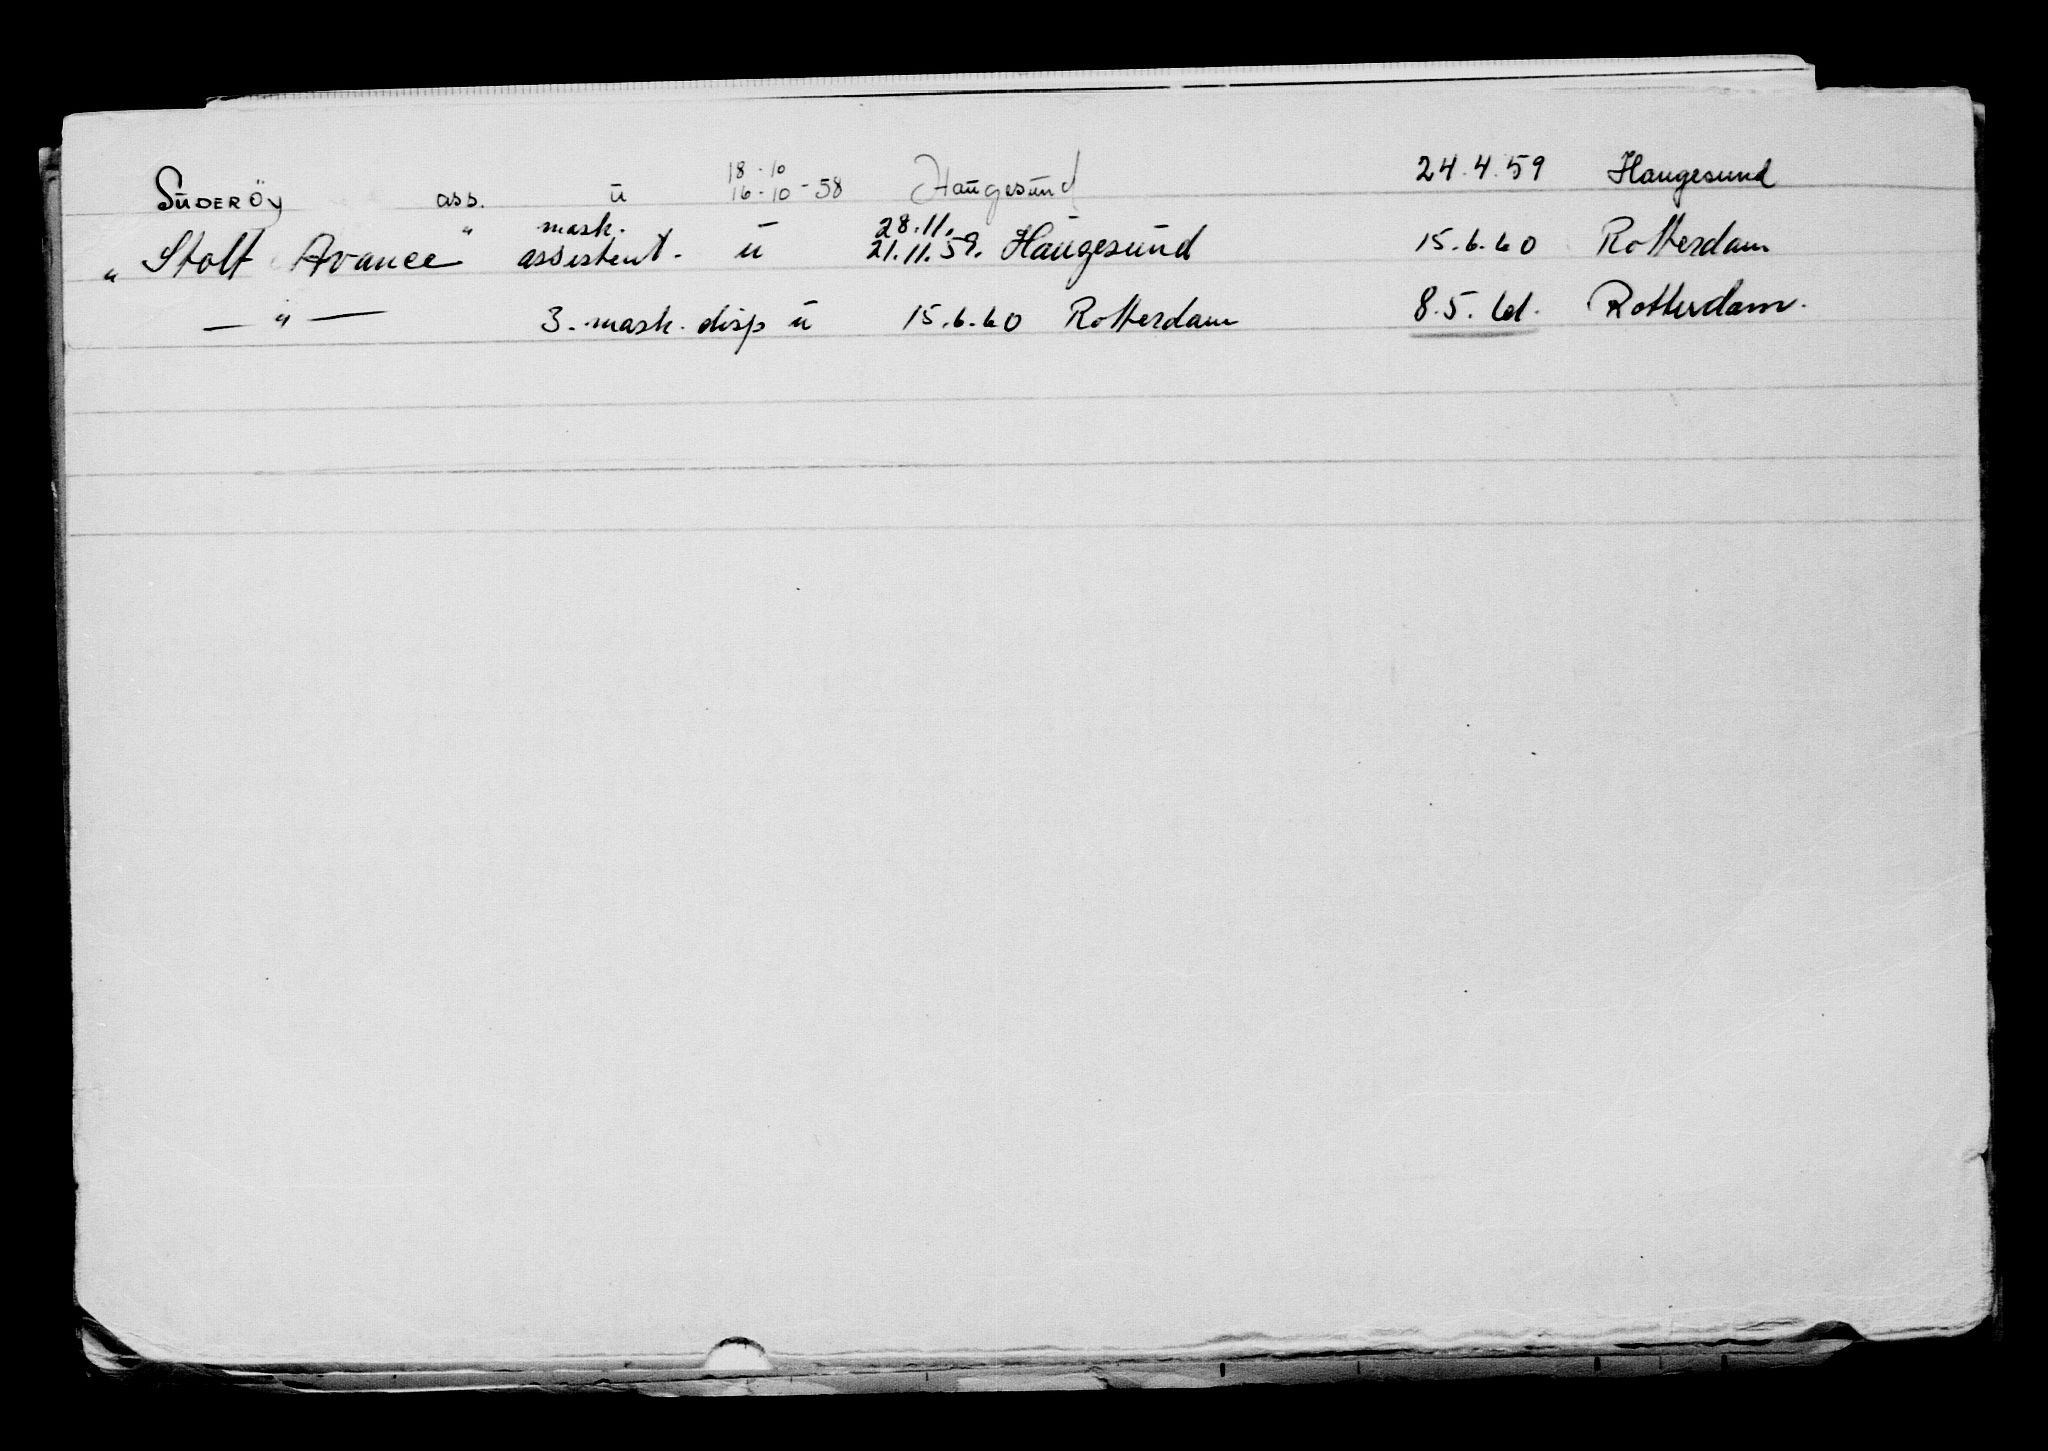 18-10
Süderöy ass. ü 16-10-58 Haugesünd 24.4.59 Haugesund
mask. 28.11.
"Stolt Avance" assistent. ü 21.11.59. Haügesünd 15.6.60 Rotterdam
— " — 3. mask. disp ü 15.6.60 Rotterdam 8.5.61. Rotterdam.